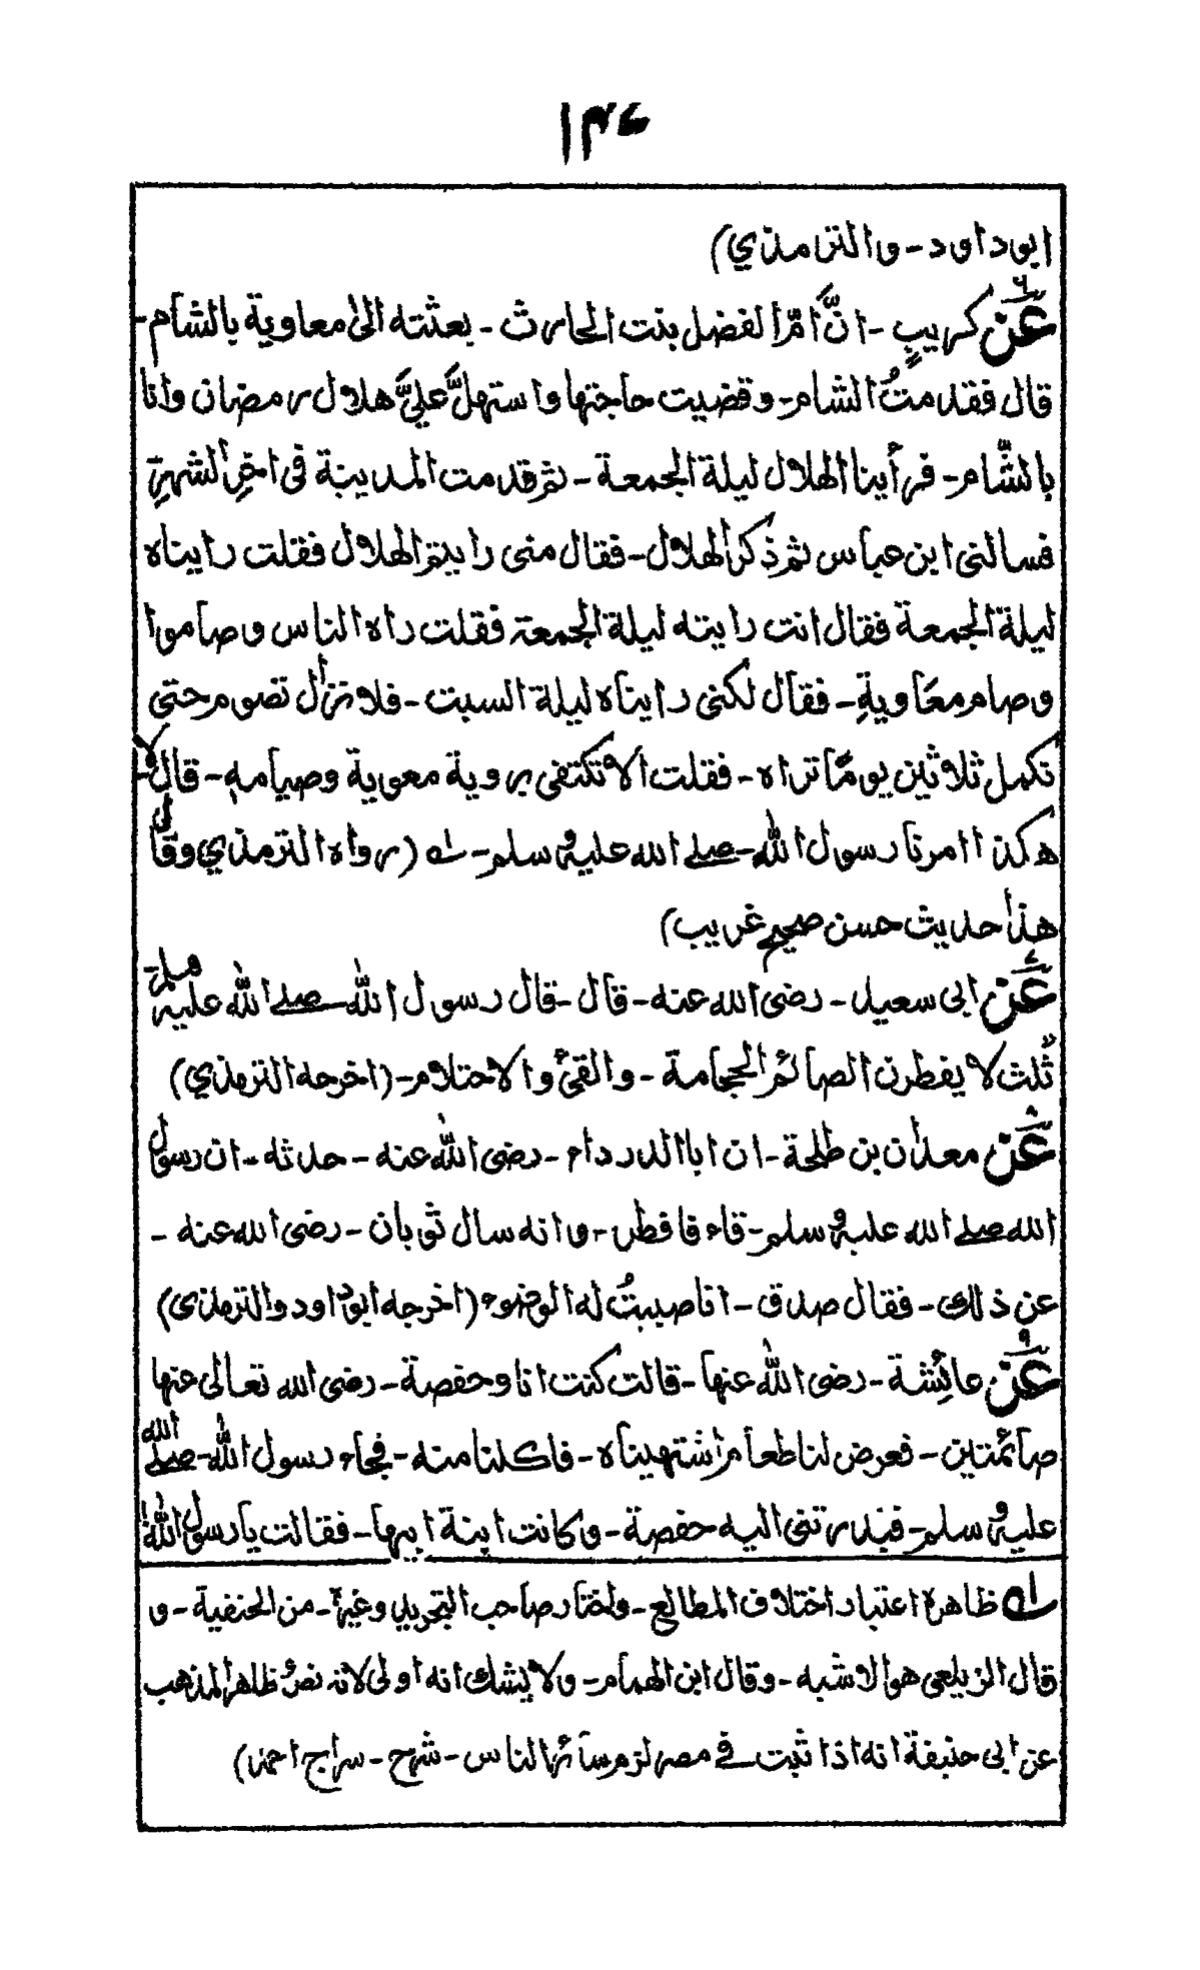 ١٣٦
ابوداود - والترمذي)
٦ عَنْ كريبٍ - انَّ امّ الفضل بنت الحارث - بعثته الى معاوية بالشام -
قال فقدمتُ الشام - وقضيت حاجتها واستهلَّ عليَّ هلال رمضان وانا
بالشَّام - فرأينا الهلال ليلة الجمعة - ثم قدمت المدينة فى اخرِ الشهرِ
فسالنى ابن عباس ثم ذكر الهلال - فقال متى رايتم الهلال فقلت رايناه
ليلة الجمعة فقال انت رايته ليلة الجمعة فقلت راه الناس وصاموا
وصام معَاويةِ - فقال لكنى رايناه ليلة السبت - فلا نزال نصوم حتى
نكمل ثلاثين يومًا او نراه - فقلت الا تكتفى بروية معوية وصيامه - قال لا -
هكذا امرنا رسول الله - صلے الله عليه وسلم - له (رواه الترمذي وقال
هذا حديث حسن صحيح غريب)
٧ عَنْ ابى سعيد - رضى الله عنه - قال - قال رسول الله صلے الله عليه وسلم
ثُلث لا يفطرن الصائم الحجامة - والقئ والاحتلام - (اخرجه الترمذي)
٨ عَنْ معدان بن طلحة - ان ابا الدرداء - رضى الله عنه - حدثه - ان رسول
الله صلے الله عليه وسلم - قاء فافطر - وانه سال ثوبان - رضى الله عنه -
عن ذلك - فقال صدق - انا صببتُ له الوضوء (اخرجه ابوداود والترمذى)
٩ عَنْ عائِشة - رضى الله عنها - قالت كنت انا وحفصة - رضى الله تعالى عنها
صآئمتين - فعرض لنا طعام اشتهيناه - فاكلنا منه - فجاء رسول الله - صلے الله
عليه وسلم - فبدرتنى اليه حفصة - وكانت ابنة ابيها - فقالت يا رسول الله
له ظاهره اعتبار اختلاف المطالع - واختار صاحب التجريد وغيره - من الحنفية - و
قال الزيلعى هو الاشبه - وقال ابن الهمام - ولا يشك انه اولى لانه نص وظاهر المذهب
عن ابى حنيفة انه اذا ثبت فے مصر لزم سآئر الناس - شرح - سراج احمد)